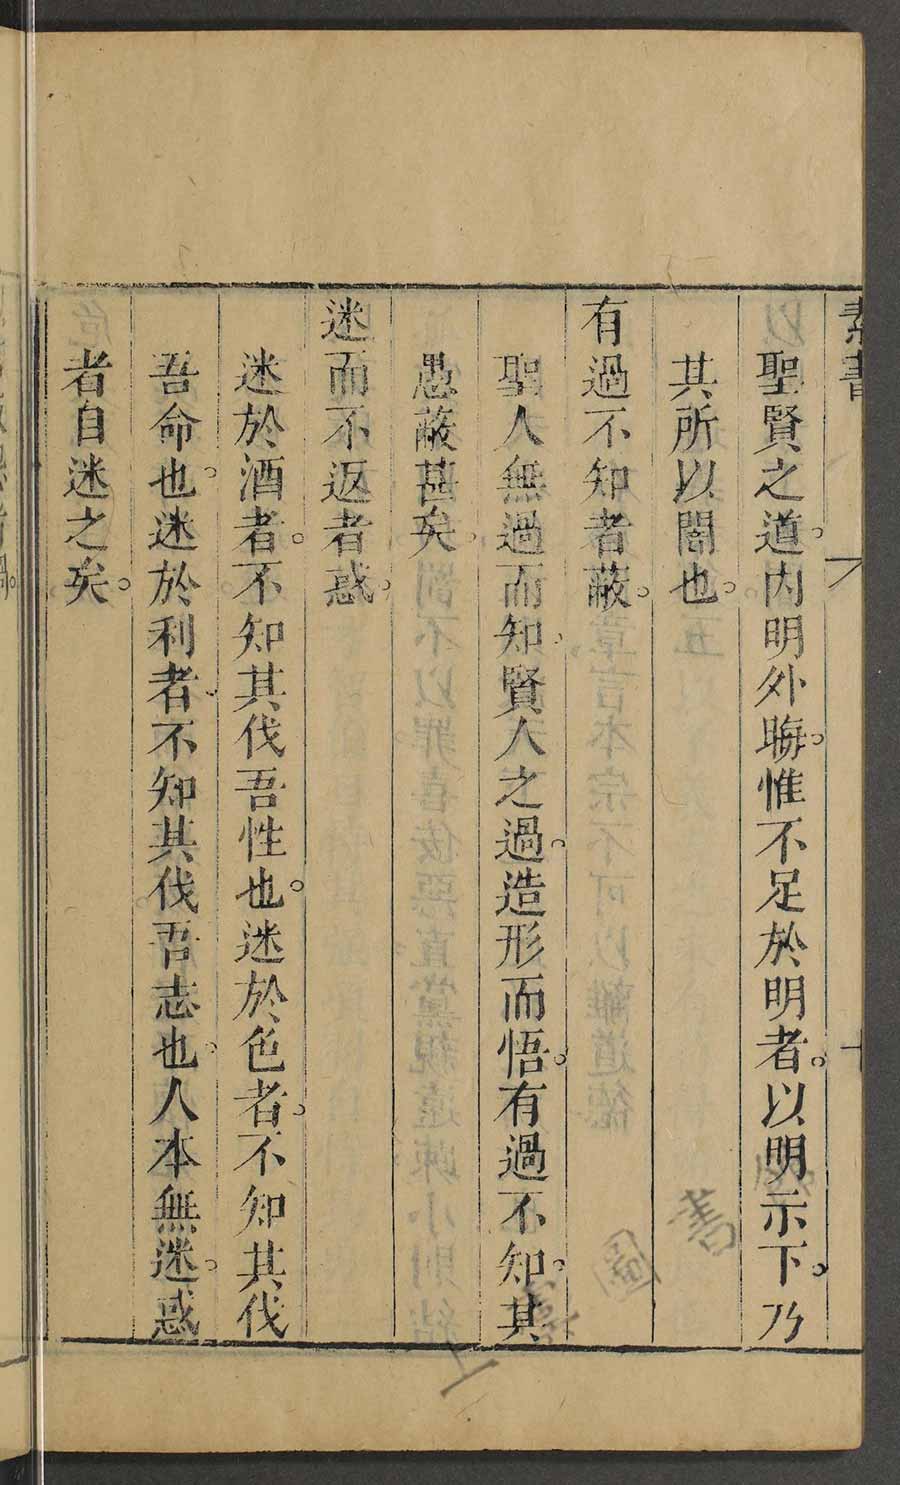 素書
聖賢之道。內明外晦。惟不足於明者。以明示下。乃
其所以闇也。
有過不知者蔽。
聖人無過而知。賢人之過。造形而悟。有過不知。其
愚蔽甚矣。
迷而不返者惑。
迷於酒者。不知其伐吾性也。迷於色者。不知其伐
吾命也。迷於利者。不知其伐吾志也。人本無迷。惑
者自迷之矣。